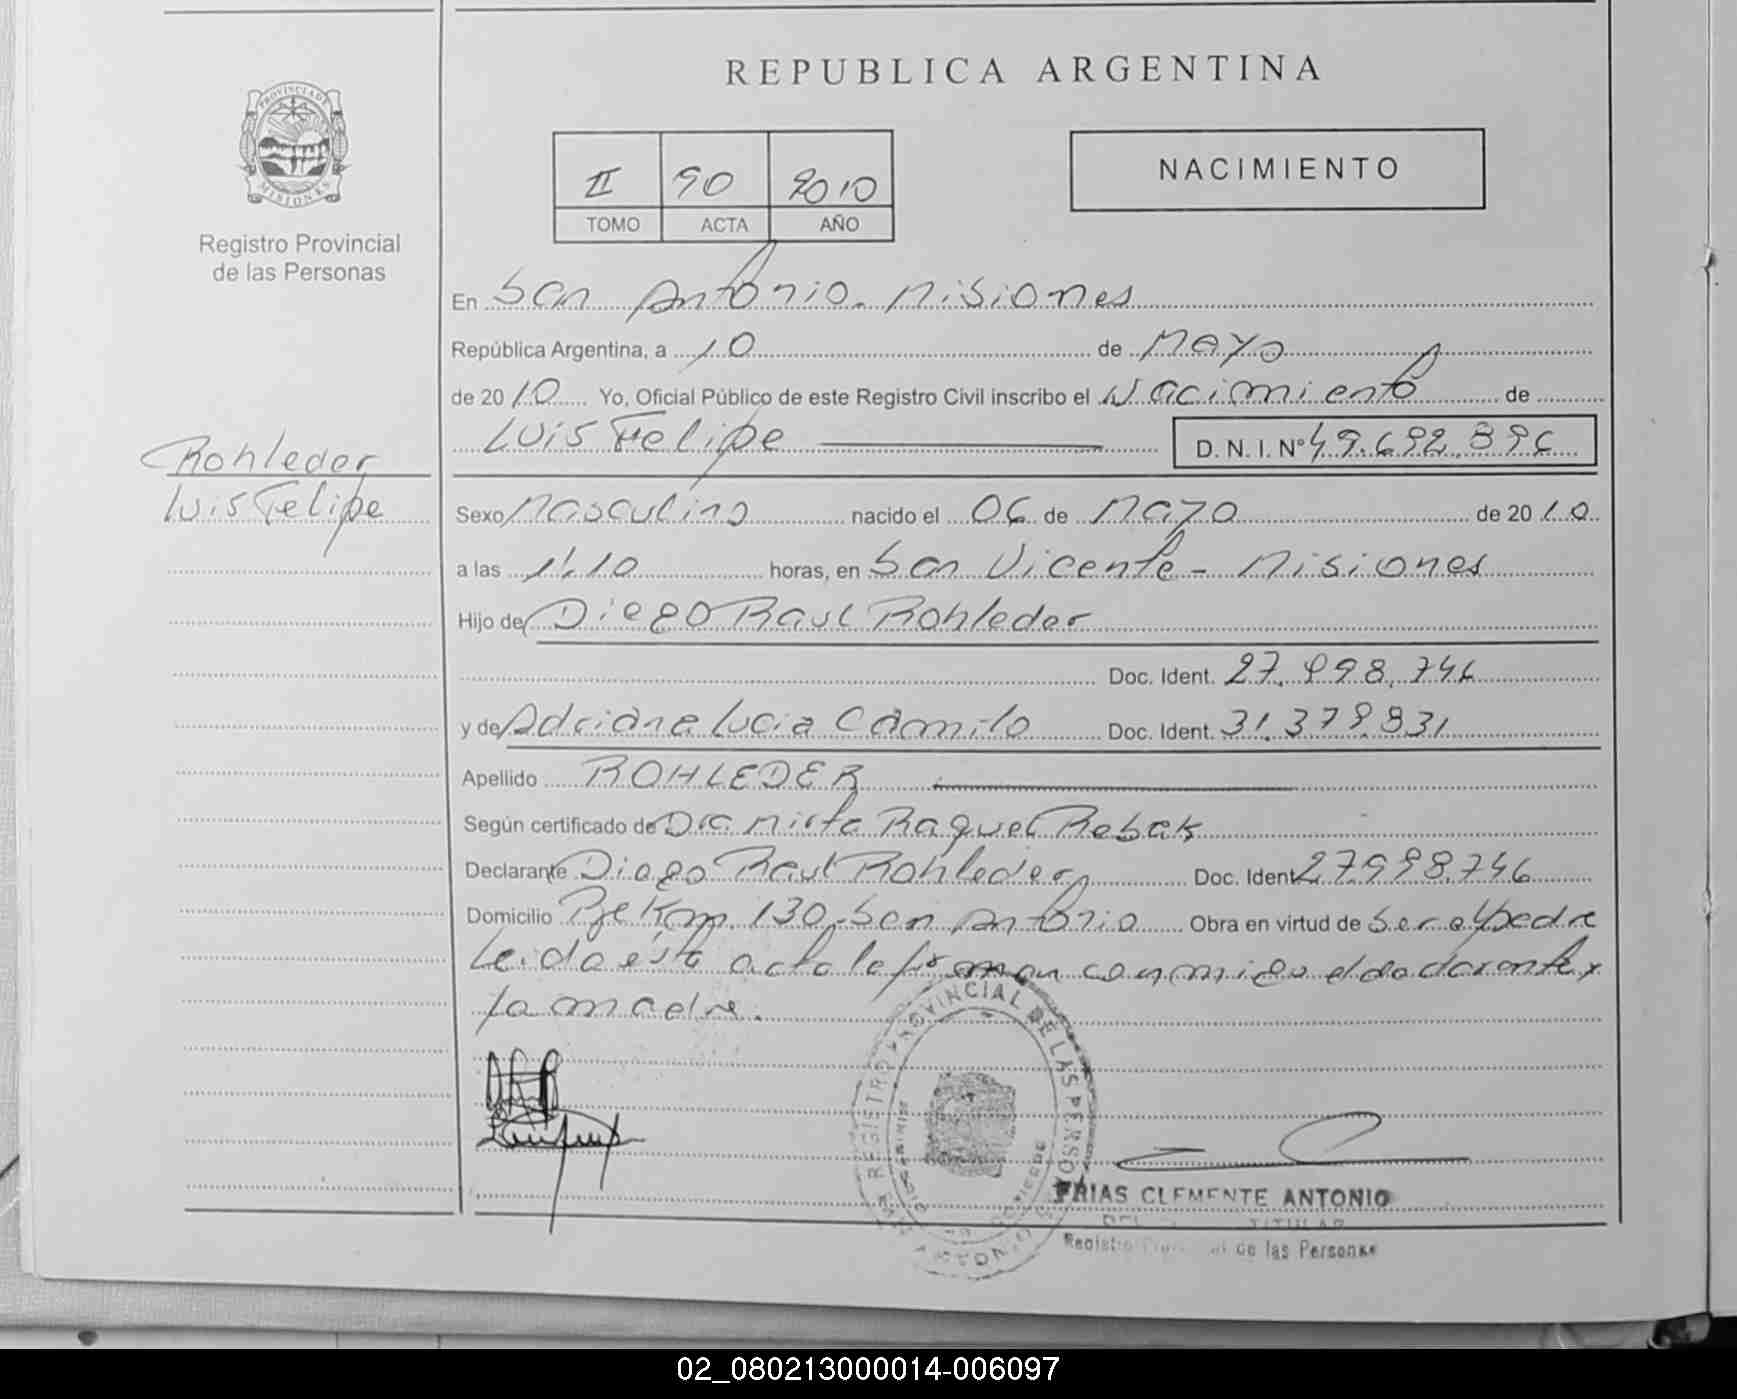 REPUBLICA ARGENTINA
PROVINCIA DE MISIONES
Registro Provincial
de las Personas
II 90 2010
TOMO ACTA AÑO
NACIMIENTO
En San Antonio. Misiones
República Argentina, a 10 de Mayo
de 2010 Yo, Oficial Público de este Registro Civil inscribo el Nacimiento de
Luis Felipe D. N. I. Nº 49.692.896
Rohleder
Luis Felipe
Sexo Masculino nacido el 06 de Mayo de 2010
a las 11.10 horas, en San Vicente - Misiones
Hijo de Diego Raul Rohleder
Doc. Ident. 27.998.746
y de Adriana Lucia Camilo Doc. Ident. 31.379.831
Apellido ROHLEDER
Según certificado de Dra. Mirta Raquel Rebak
Declarante Diego Raul Rohleder Doc. Ident 27998.746
Domicilio Pje Km. 130. San Antonio Obra en virtud de Ser el padre
Leida esta acta la firman conmigo el declarante y
la madre.
REGISTRO PROVINCIAL DE LAS PERSONAS
FRIAS CLEMENTE ANTONIO
TITULAR
Registro Provincial de las Personas
02_080213000014-006097